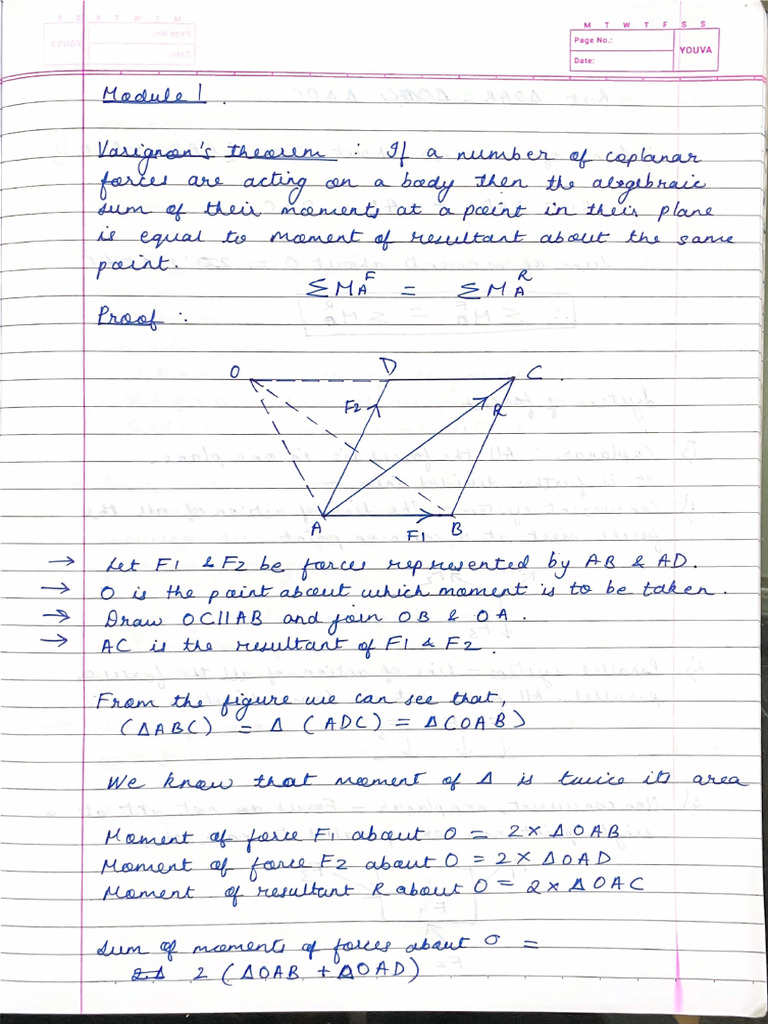 M T W T F S S
Page No.:
YOUVA
Date:
Module 1.
Varignon's theorem : If a number of coplanar
forces are acting on a body then the algebraic
sum of their moments at a point in their plane
is equal to moment of resultant about the same
point.
ΣM_A^F = ΣM_A^R
Proof :
O D C.
F2 R
A F1 B
→ Let F1 & F2 be forces represented by AB & AD.
→ O is the point about which moment is to be taken.
→ Draw OC||AB and join OB & OA.
→ AC is the resultant of F1 & F2.
From the figure we can see that,
(ΔABC) = Δ (ADC) = Δ(OAB)
We know that moment of Δ is twice its area
Moment of force F1 about O = 2×ΔOAB
Moment of force F2 about O = 2×ΔOAD
Moment of resultant R about O = 2×ΔOAC
Sum of moments of forces about O =
2 (ΔOAB + ΔOAD)